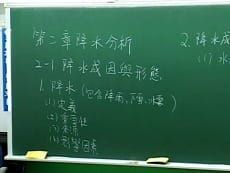 第二章降水分析
2-1 降水成因與形態
1. 降水(包含降雨,下雪,冰雹)
(1) 定義
(2) 重要性
(3) 來源
(4) 影響因素
2. 降水成
(1) 水